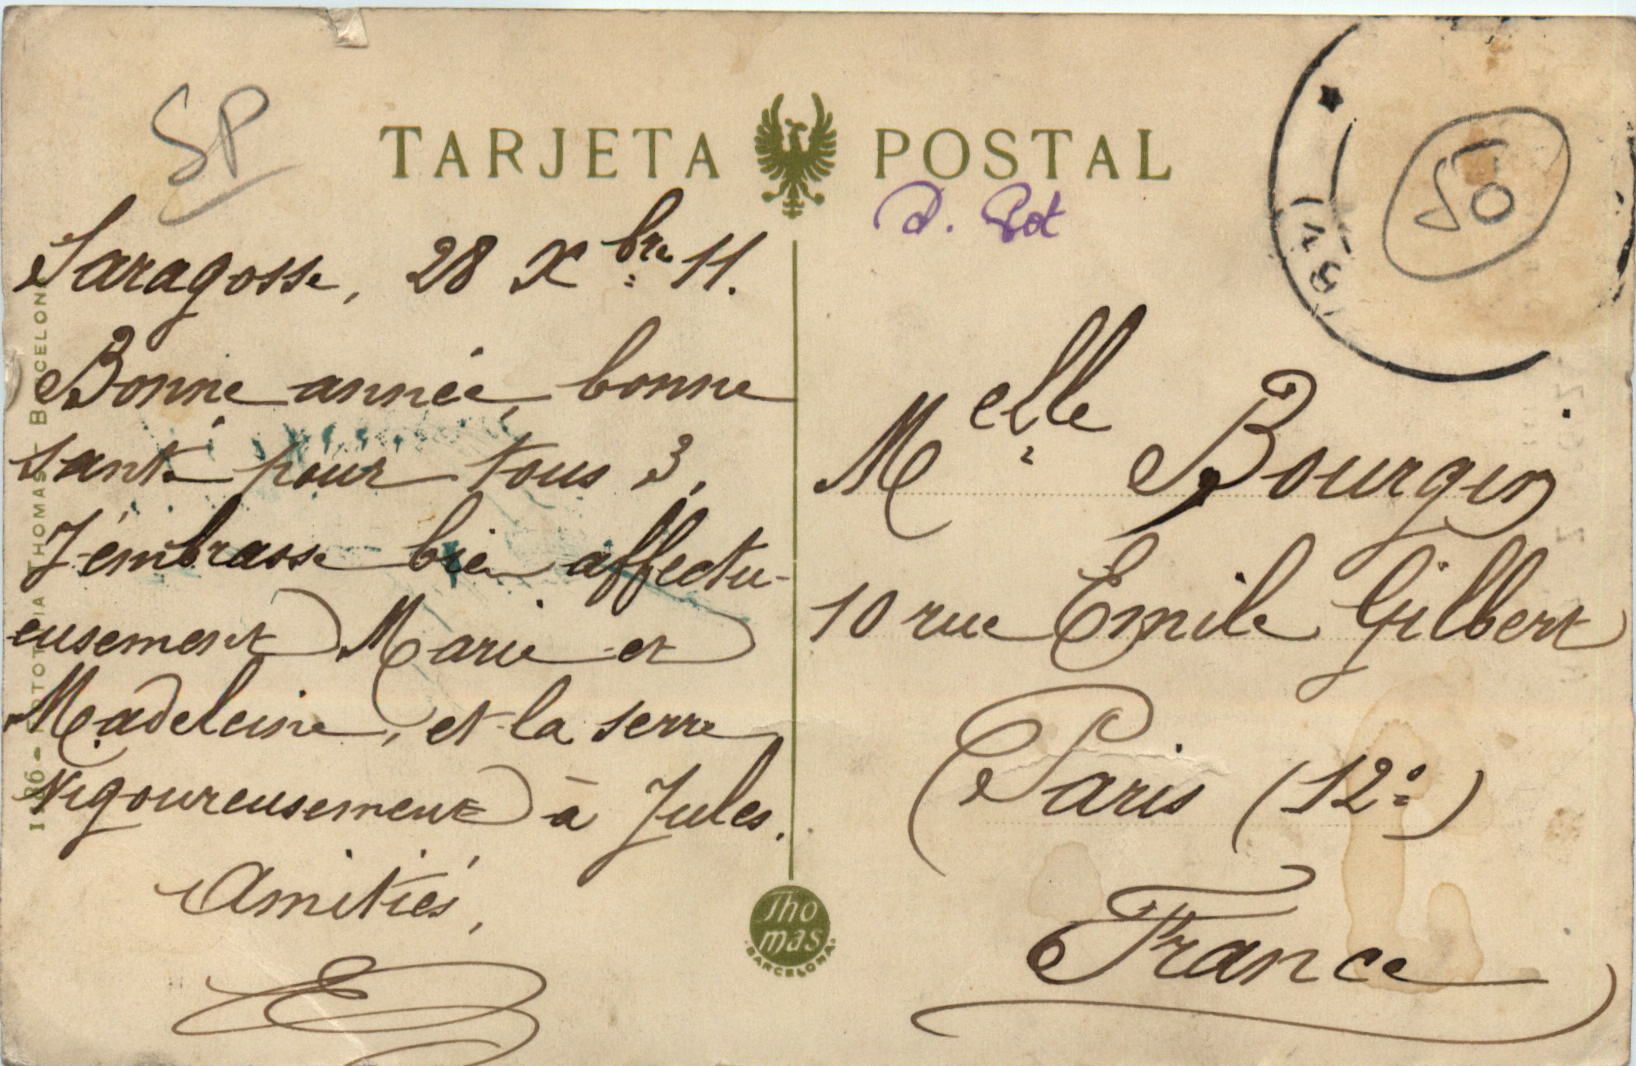 SP
TARJETA POSTAL
Saragosse, 28 Xbre 11.
Bonne année, bonne
santé pour tous 3.
J'embrasse bien affectu-
eusement Marie et
Madeleine, et la serre
vigoureusement à Jules.
Amitiés,
Melle Bourgin
10 rue Emile Gilbert
Paris (12e)
France
50
Thomas
BARCELONA
THOMAS - BARCELONA